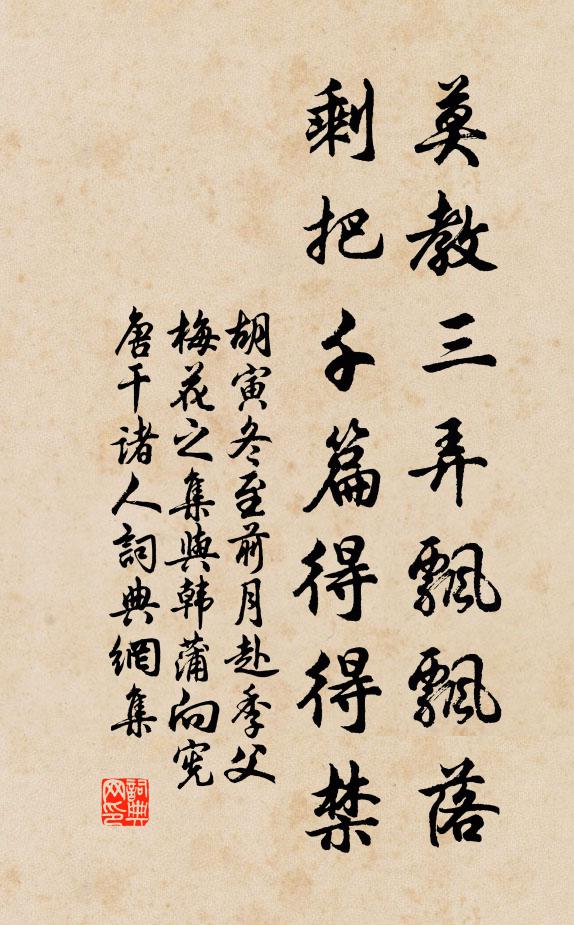 莫教三弄飘飘落
剩把千篇得得禁
胡寅冬至前月赴季父
梅花之集與韩蒲向宪
唐干诸人詞典網集
詞典
网印